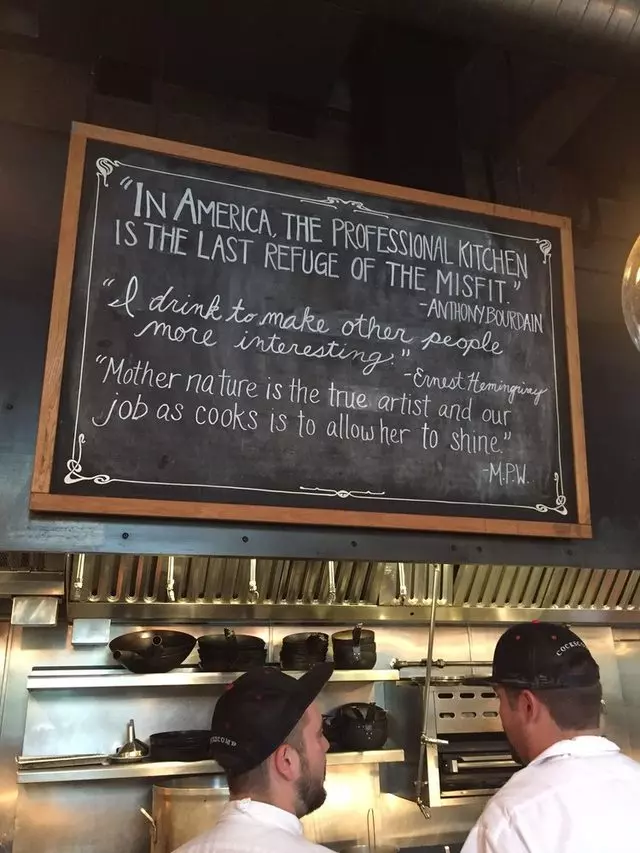 "IN AMERICA, THE PROFESSIONAL KITCHEN
IS THE LAST REFUGE OF THE MISFIT."
-ANTHONY BOURDAIN
"I drink to make other people
more interesting."
-Ernest Hemingway
"Mother nature is the true artist and our
job as cooks is to allow her to shine."
-M.P.W.